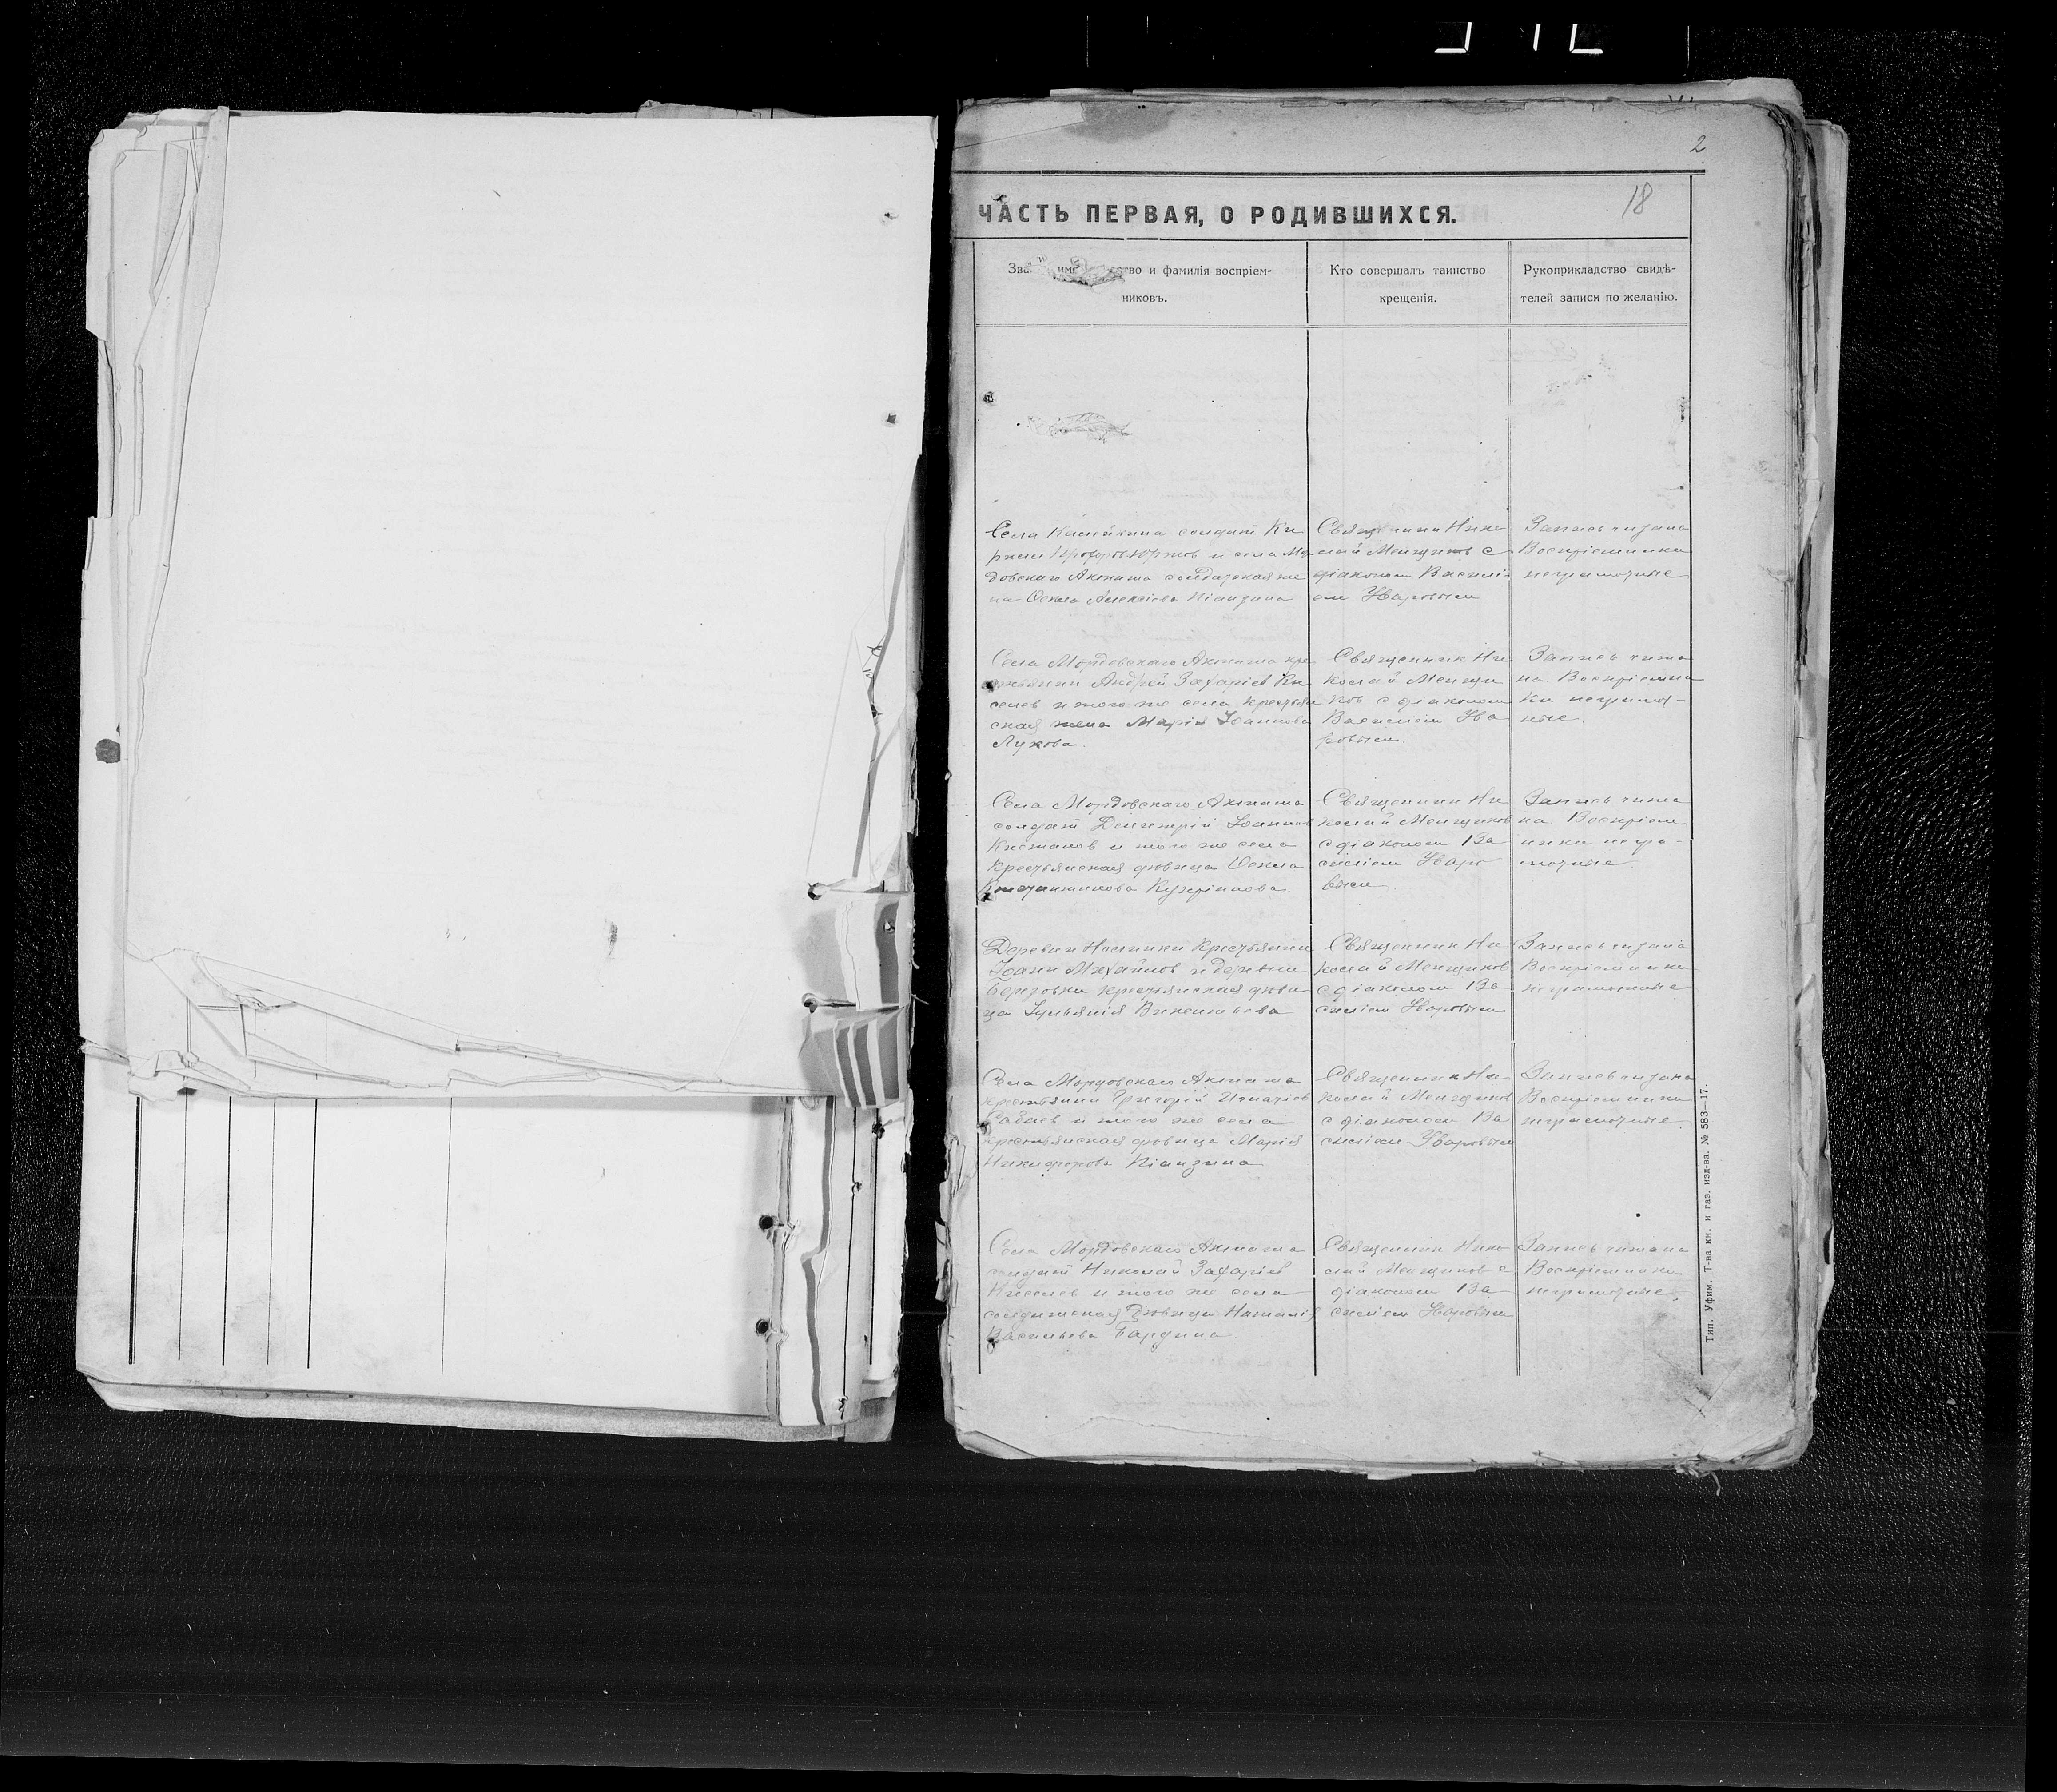 2
18
ЧАСТЬ ПЕРВАЯ, О РОДИВШИХСЯ.
имя ство и фамилія воспріем-
никовъ.
Кто совершалъ таинство
крещенія.
Рукоприкладство свидѣ-
телей записи по желанію.
Села солдат Ки
рилл и села Мо
довскаго Акташа солдатская же
на Алексіева Піанзина
Священник Нико
лай Менщиков с
діаконом Василі
ем Уваровым
Запись читана
Воспріемники
неграмотные
Села Мордовскаго Акташа кре
стьянин Андрей Захаріев Ки
селев и того же села крестьян
ская жена Марія Іоаннова
Лукова.
Священник Ни
колай Менщи
ков с діаконом
Василіем Ува
ровым.
Запись чита
на. Воспріемни
ки неграмот-
ные.
Села Мордовскаго Акташа
солдат Димитрій Іоаннов
и того же села
крестьянская девица
Константинова Купріянова.
Священник Ни
колай Менщиков
с діаконом Ва
силіем Уваро
вым
Запись чита
на Воспріем
ники негра-
мотные
Деревни крестьянин
Іоанн Михайлов и деревни
Березовки крестьянская деви
ца Іуліянія Викентьева
Священник Ни
колай Менщиков
с діаконом Ва
силіем Уваровым
Запись читана
Воспріемники
неграмотные
Села Мордовскаго Акташа
крестьянин Григорій Игнатіев
и того же села
крестьянская девица Марія
Никифорова Піанзина
Священник Ни
колай Менщиков
с діаконом Ва
силіем Уваровым
Запись читана
Воспріемники
неграмотные.
Села Мордовскаго Акташа
солдат Николай Захаріев
Киселев и того же села
солдатская девица Наталія
Васильева
Священник Нико
лай Менщиков с
діаконом Ва
силіем Уваровым
Запись читана
Воспріемники
неграмотные.
Тип. Уфим. Т-ва кн. и газ. изд-ва. № 583—17.